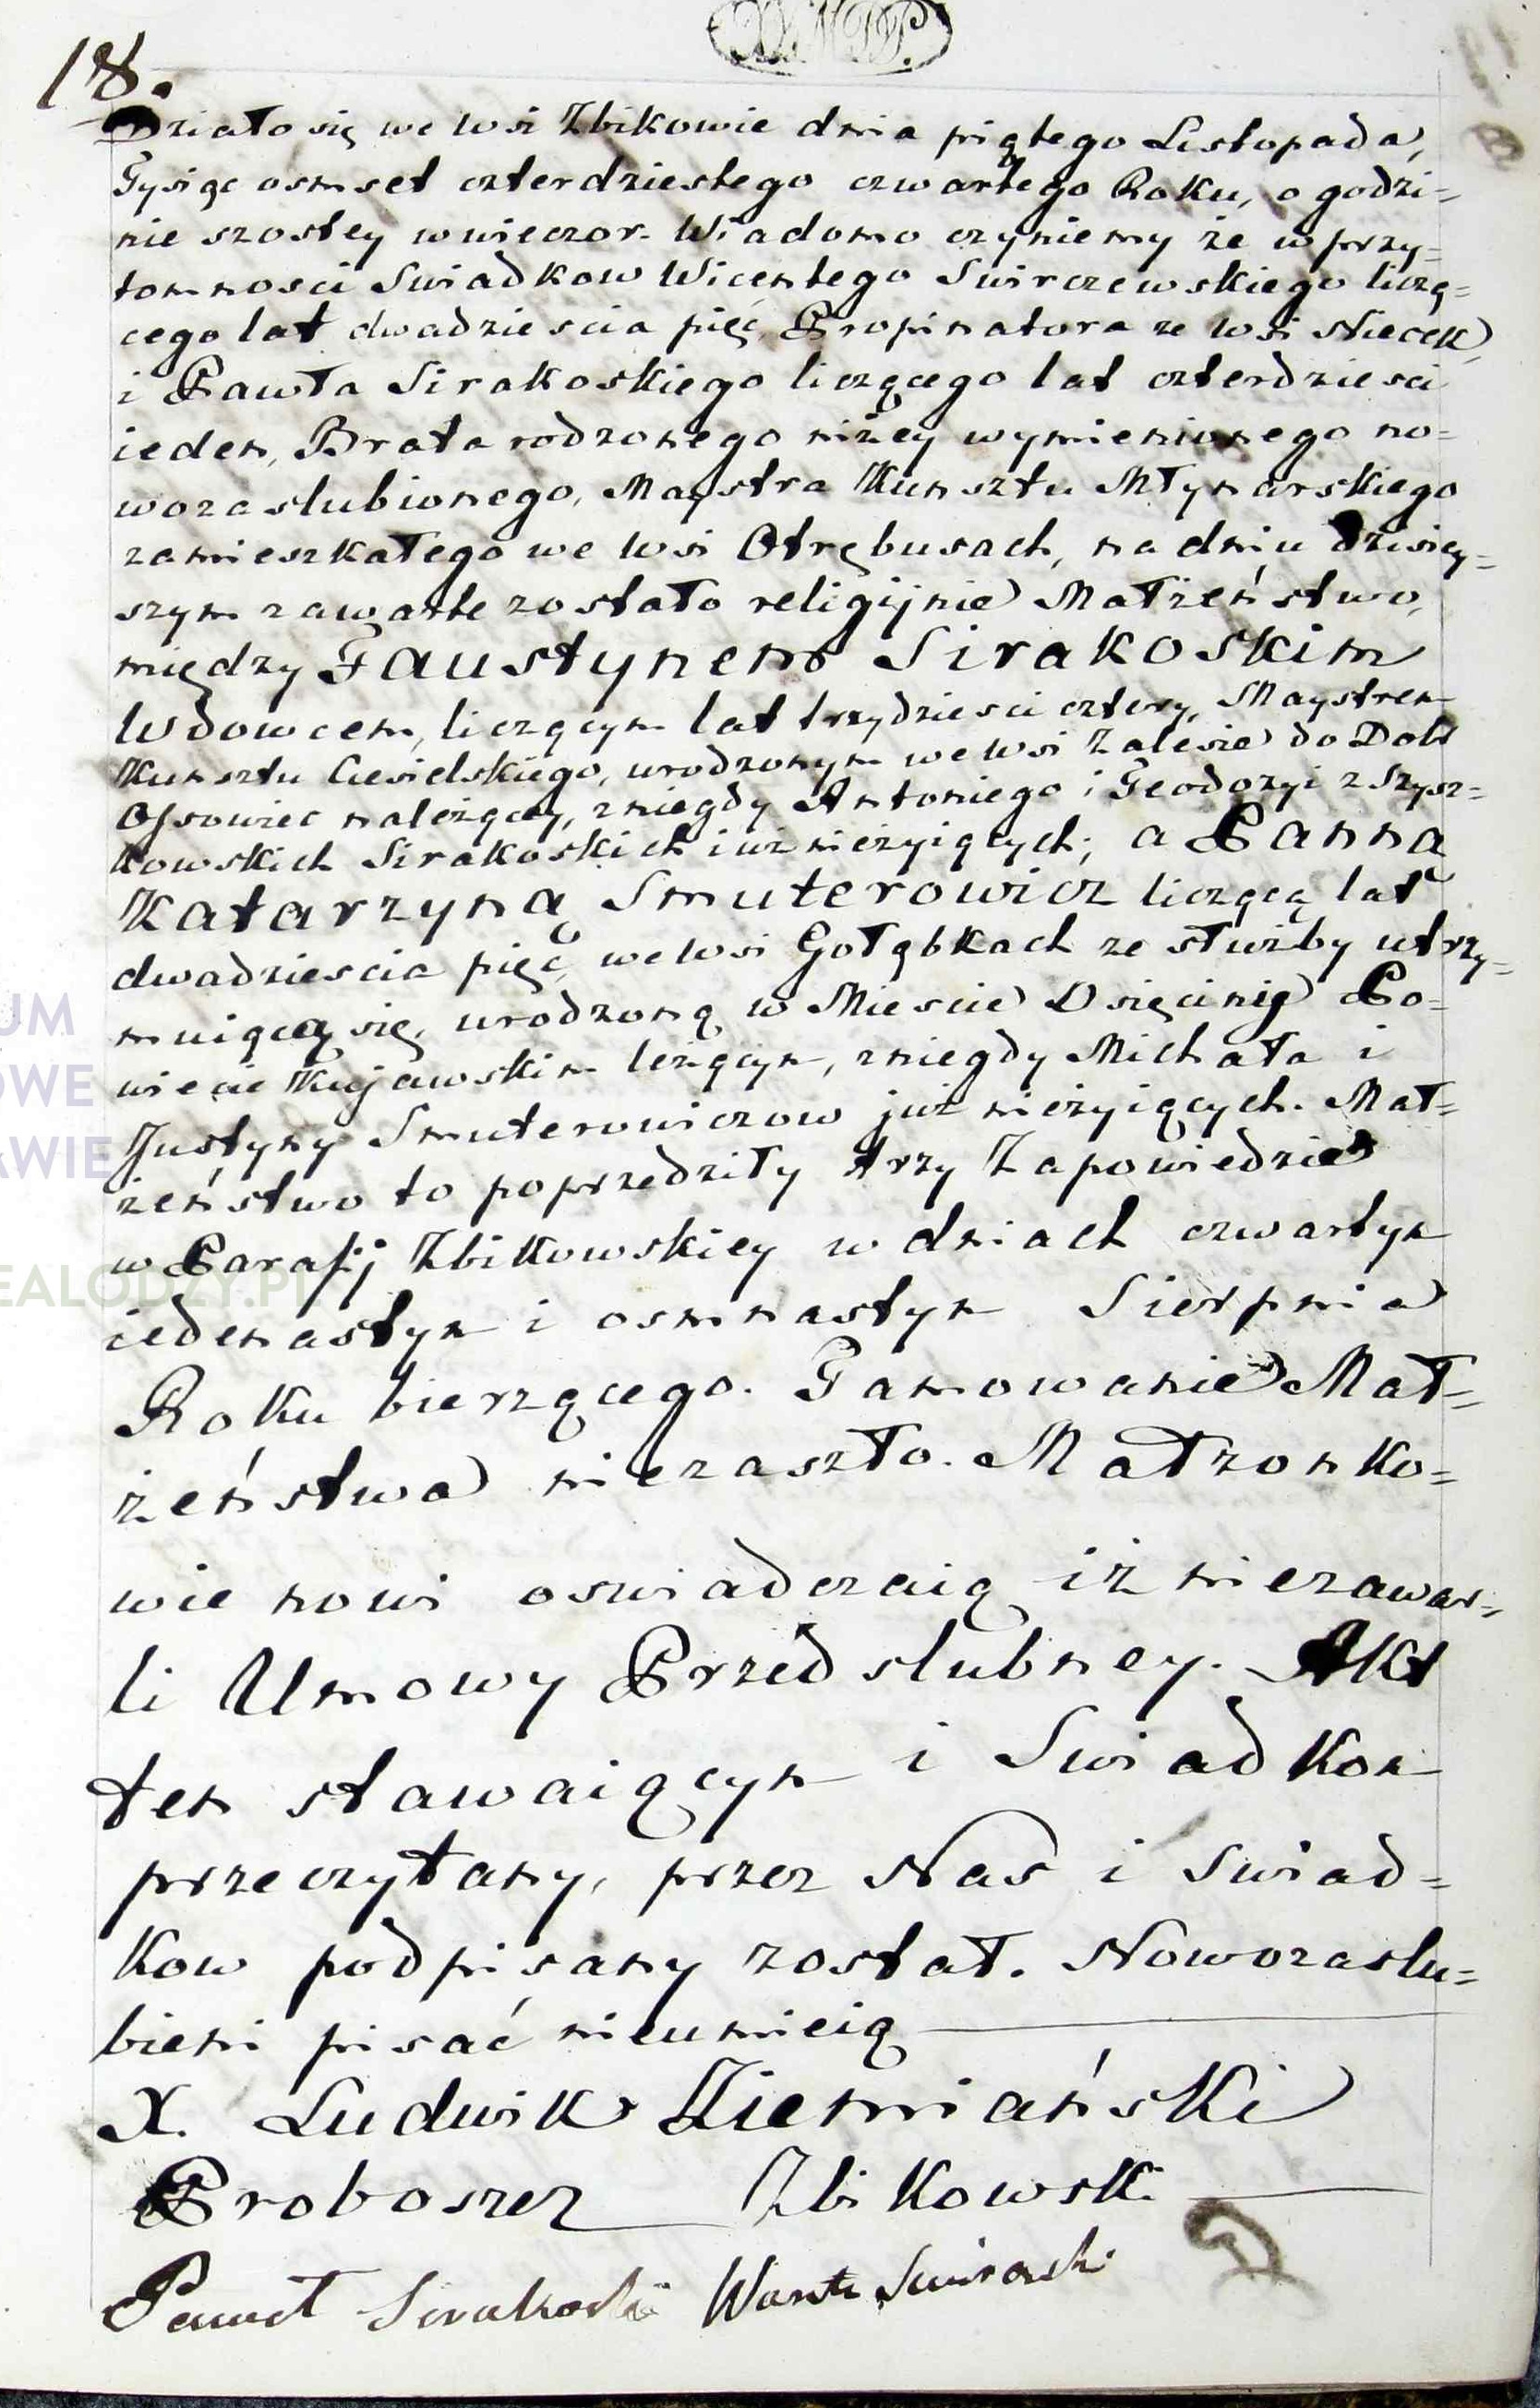 18.
Działo się we wsi Zbikowie dnia piątego Listopada,
Tysiąc osmset czterdziestego czwartego Roku, o godzi=
nie szostey wwieczor. Wiadomo czyniemy że wprzy=
tomnosci Swiadkow Wicentego Swirczewskiego liczą=
cego lat dwadziescia pięć, Propinatora ze wsi Niecek,
i Pawła Sirakoskiego liczącego lat czterdziesci
ieden, Brata rodzonego niżey wymienionego no=
wozaslubionego, Maystra Kunsztu Młynarskiego
zamieszkałego we wsi Otrębusach, na dniu dzisiey=
szym zawarte zostało religijnie Małżeństwo,
między Faustynem Sirakoskim
Wdowcem, liczącym lat trzydziesci cztery, Maystrem
Kunsztu Ciesielskiego, urodzonym we wsi Zalesie do Dobr
Ossowiec należącey, zniegdy Antoniego i Teodozyi z Szysz=
kowskich Sirakoskich iuż nieżyiących; a Panną
Katarzyną Smuterowicz liczącą lat
dwadziescia pięć, we wsi Gołąbkach ze służby utrzy=
muiącą się, urodzoną w Miescie Osięciny Po=
wiecie Kujawskim leżącym, zniegdy Michała i
Justyny Smuterowiczow już nieżyiących. Mał=
żeństwo to poprzedziły trzy Zapowiedzie
w Parafij Zbikowskiey w dniach czwartym
iedenastym i osmnastym Sierpnia
Roku bierzącego. Tamowanie Mał=
żeństwa niezaszło. Małzonko=
wie nowi oswiadczaią iż niezawar=
li Umowy Przedslubney. Akt
ten stawaiącym i Swiadkom
przeczytany, przez Nas i Swiad=
kow podpisany został. Nowozaslu=
bieni pisać nieumieią
X. Ludwik Ziemiański
Proboszcz Zbikowski
Paweł Sirakoski